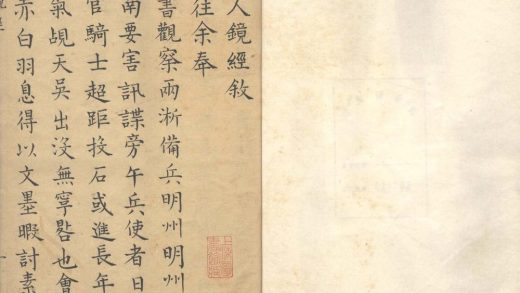 人鏡經敘
往余奉
書觀察兩淛備兵明州明州
南要害訊諜旁午兵使者日
官騎士超距投石或進長年
氣覘天吳出沒無寧晷也會
赤白羽息得以文墨暇討素